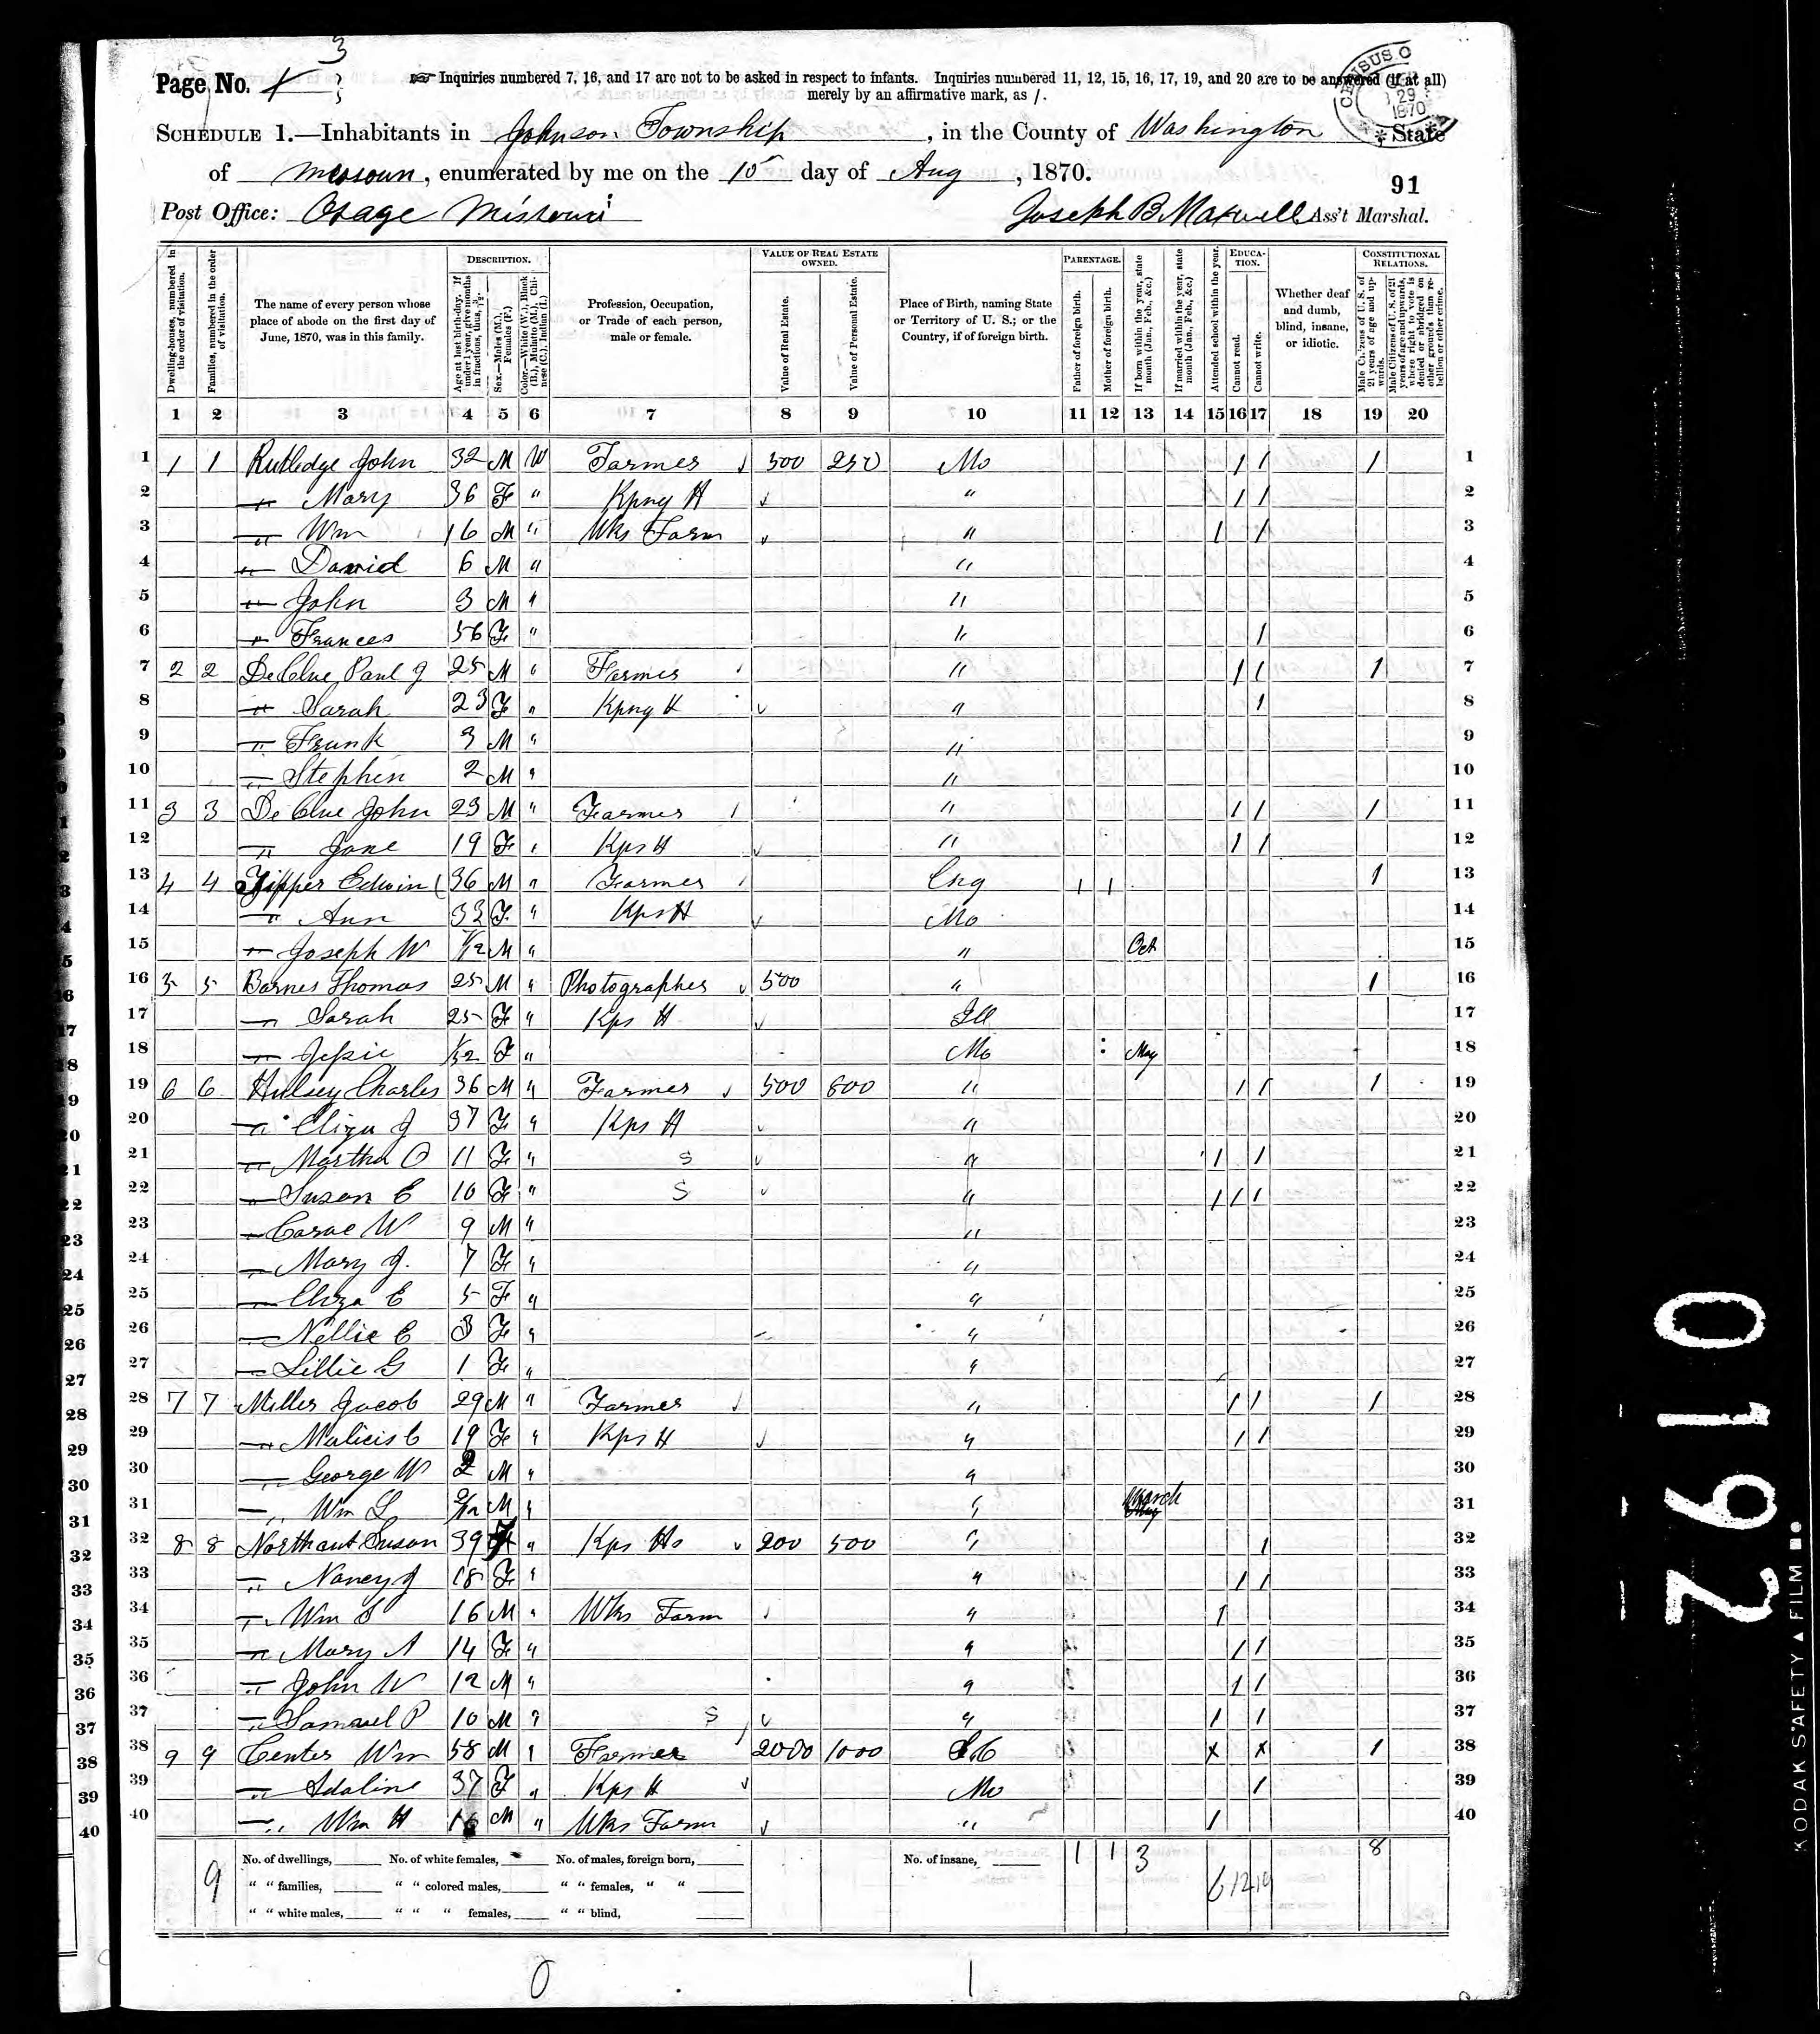 Page No. 3
☞ Inquiries numbered 7, 16, and 17 are not to be asked in respect to infants. Inquiries numbered 11, 12, 15, 16, 17, 19, and 20 are to be answered (if at all)
merely by an affirmative mark, as /.
SCHEDULE 1.—Inhabitants in Johnson Township, in the County of Washington, State
of Missouri, enumerated by me on the 15 day of Aug, 1870.
91
Post Office: Osage Missouri Joseph B Maxwell Ass't Marshal.
CENSUS O 29 1870
Dwelling-houses, numbered in the order of visitation.
Families, numbered in the order of visitation.
The name of every person whose place of abode on the first day of June, 1870, was in this family.
DESCRIPTION.
Age at last birth-day. If under 1 year, give months in fractions, thus, 3/12.
Sex.—Males (M.), Females (F.)
Color.—White (W.), Black (B.), Mulatto (M.), Chinese (C.), Indian (I.)
Profession, Occupation, or Trade of each person, male or female.
VALUE OF REAL ESTATE OWNED.
Value of Real Estate.
Value of Personal Estate.
Place of Birth, naming State or Territory of U. S.; or the Country, if of foreign birth.
PARENTAGE.
Father of foreign birth.
Mother of foreign birth.
If born within the year, state month (Jan., Feb., &c.)
If married within the year, state month (Jan., Feb., &c.)
Attended school within the year.
EDUCATION.
Cannot read.
Cannot write.
Whether deaf and dumb, blind, insane, or idiotic.
CONSTITUTIONAL RELATIONS.
Male Citizens of U. S. of 21 years of age and upwards.
Male Citizens of U. S. of 21 years of age and upwards, where right to vote is denied or abridged on other grounds than rebellion or other crime.
1 2 3 4 5 6 7 8 9 10 11 12 13 14 15 16 17 18 19 20
1 1 1 Rutledge John 32 M W Farmer 500 250 Mo / / / 1
2 " Mary 36 F " Kpng H " / / 2
3 " Wm 16 M " Wks Farm " / / 3
4 " David 6 M " " 4
5 " John 3 M " " 5
6 " Frances 56 F " " / 6
7 2 2 DeClue Paul J 25 M " Farmer " / / / 7
8 " Sarah 23 F " Kpng H " / 8
9 " Frank 3 M " " 9
10 " Stephen 2 M " " 10
11 3 3 De Clue John 23 M " Farmer " / / / 11
12 " Jane 19 F " Kps H " / / 12
13 4 4 Edwin 36 M " Farmer Eng / / / 13
14 " Ann 33 F " Kps H Mo 14
15 " Joseph W /12 M " " Oct 15
16 5 5 Barnes Thomas 25 M " Photographer 500 " / 16
17 " Sarah 25 F " Kps H Ill 17
18 " Jessie /12 F " Mo May 18
19 6 6 Hulsey Charles 36 M " Farmer 500 800 " / / / 19
20 " Eliza J 37 F " Kps H " 20
21 " Martha O 11 F " S " / / 21
22 " Susan E 10 F " S " / / / 22
23 " W 9 M " " 23
24 " Mary J. 7 F " " 24
25 " Eliza E 5 F " " 25
26 " Nellie C 3 F " " 26
27 " Lillie G 1 F " " 27
28 7 7 Miller Jacob 29 M " Farmer " / / / 28
29 " C 19 F " Kps H " / / 29
30 " George W 2 M " " 30
31 " Wm L /12 M " " March 31
32 8 8 Northcut Susan 39 F " Kps Ho 200 500 " / 32
33 " Nancy J 18 F " " / / 33
34 " Wm S 16 M " Wks Farm " / 34
35 " Mary A 14 F " " / / 35
36 " John W 12 M " " / / 36
37 " Samuel P 10 M " S " / / 37
38 9 9 Center Wm 58 M " Farmer 2000 1000 S.C x x / 38
39 " Adaline 37 F " Kps H Mo / 39
40 " Wm H 16 M " Wks Farm " / 40
9 No. of dwellings, No. of white females, No. of males, foreign born, No. of insane, 1 1 3 6 12 19 8
" " families, " " colored males, " " females, " "
" " white males, " " " females, " " blind,
0 1
7610
KODAK SAFETY ▲ FILM